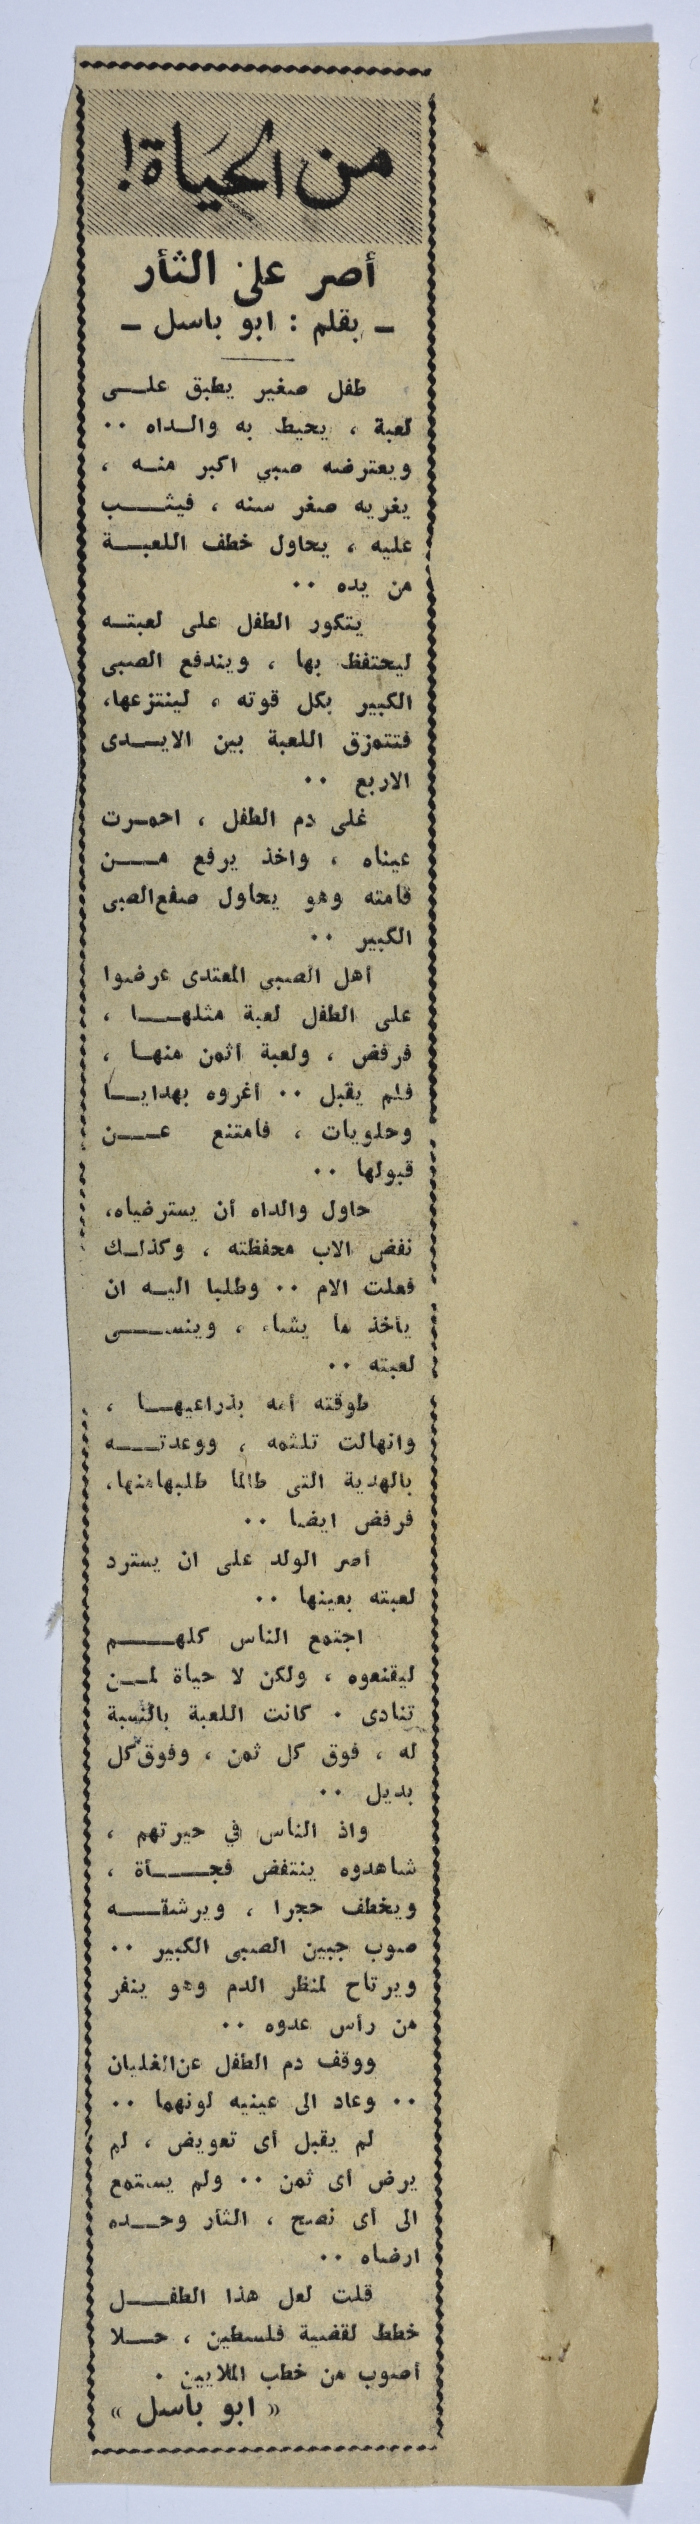 من الحياة!
أصر على الثأر
ـ بقلم : ابو باسل ـ
طفل صغير يطبق علـــى
لعبة ، يحيط به والـداه ٠٠
ويعترضه صبي اكبر منـه ،
يغريه صغر سنه ، فيثـــب
عليه ، يحاول خطف اللعبــة
من يده ٠٠
يتكور الطفل على لعبتـه
ليحتفظ بها ، ويندفع الصبى
الكبير بكل قوته ، لينتزعها،
فتتمزق اللعبة بين الايــدى
الاربع ٠٠
غلى دم الطفل ، احمـرت
عيناه ، واخذ يرفع مـــن
قامته وهو يحاول صفع الصبى
الكبير ٠٠
أهل الصبي المعتدى عرضوا
على الطفل لعبة مثلهــا ،
فرفض ، ولعبة أثمن منهـا ،
فلم يقبل ٠٠ أغروه بهدايــا
وحلويات ، فامتنع عـــن
قبولها ٠٠
حاول والداه أن يسترضياه،
نفض الاب محفظته ، وكذلـك
فعلت الام ٠٠ وطلبا اليـه ان
يأخذ ما يشاء ، وينســـى
لعبته ٠٠
طوقته أمه بذراعيهــا ،
وانهالت تلثمه ، ووعدتـــه
بالهدية التى طالما طلبها منها،
فرفض ايضا ٠٠
أصر الولد على ان يسترد
لعبته بعينها ٠٠
اجتمع الناس كلهـــم
ليقنعوه ، ولكن لا حياة لمــن
تنادى ٠ كانت اللعبة بالنسبة
له ، فوق كل ثمن ، وفوق كل
بديل ٠٠
واذ الناس في حيرتهم ،
شاهدوه ينتفض فجـــأة ،
ويخطف حجرا ، ويرشقـــه
صوب جبين الصبى الكبير ٠٠
ويرتاح لمنظر الدم وهو ينفر
من رأس عدوه ٠٠
ووقف دم الطفل عن الغليان
٠٠ وعاد الى عينيه لونهما ٠٠
لم يقبل أى تعويض ، لم
يرض أى ثمن ٠٠ ولم يستمع
الى أى نصح ، الثأر وحـــده
ارضاه ٠٠
قلت لعل هذا الطفـــل
خطط لقضية فلسطين ، حـــلا
أصوب من خطب الملايين ٠
« ابو باسل »